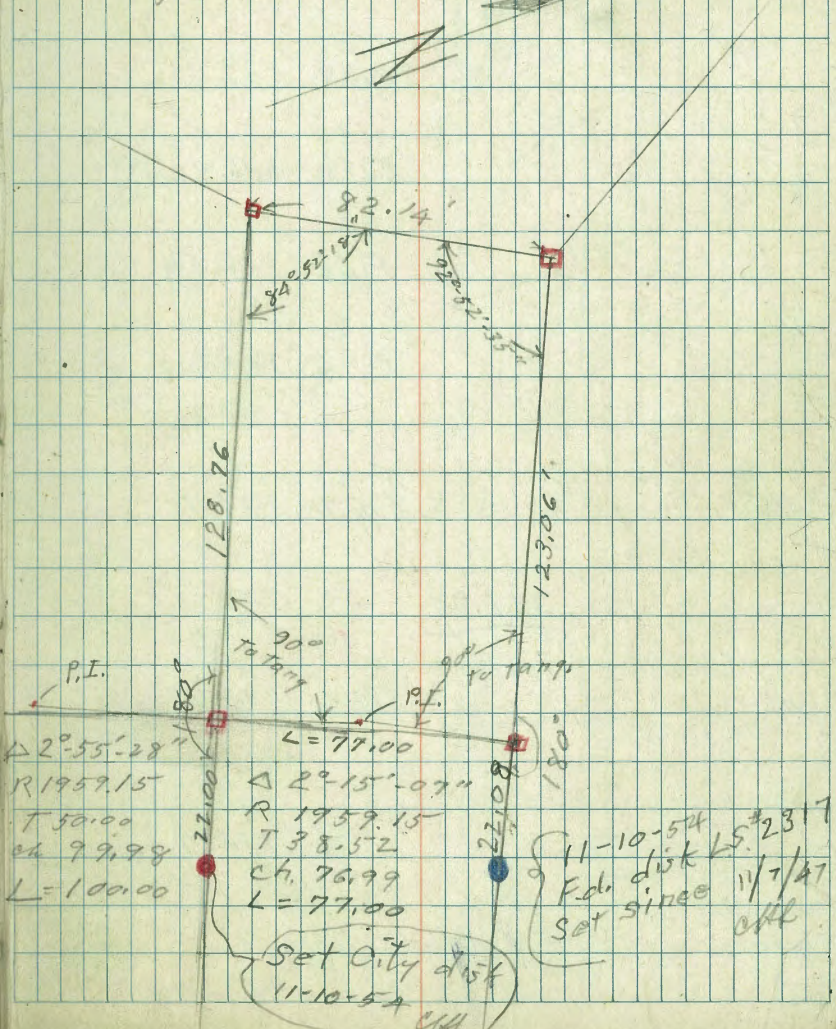 82.14'
84°-52'-18"
92°-52'-35"
128.76
123.061
90°
to tang
90°
to tang.
P.I.
180°
P.I.
L = 77.00
180°
Δ 2°-55'-28"
R 1959.15
T 50.00
ch 99.98
L = 100.00
22.00
Δ 2°-15'-07"
R 1959.15
T 38.52
ch. 76.99
L = 77.00
22.08
11-10-54
Fd. disk L.S.#2317
Set since 11/7/47
Set City disk
11-10-54